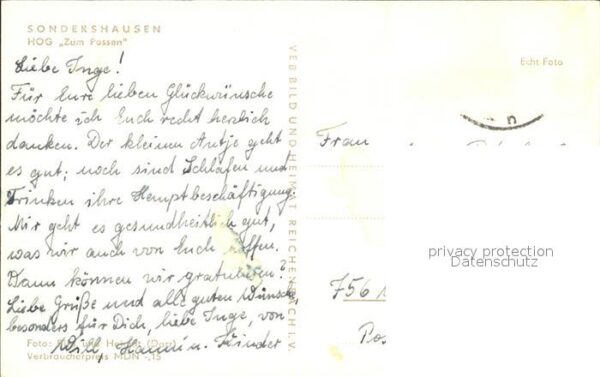 SONDERSHAUSEN
HOG „Zum Possen"
Liebe Inge!
Für Eure lieben Glückwünsche
möchte ich Euch recht herzlich
danken. Der kleinen Antje geht
es gut; noch sind Schlafen und
Trinken ihre Hauptbeschäftigung.
Mir geht es gesundheitlich gut,
was wir auch von Euch hoffen.
Wann können wir gratulieren?
Liebe Grüße und alle guten Wünsche,
besonders für Dich, liebe Inge, von
Willi, Hanni u. Kinder
Foto: und (Darr)
Verbraucherpreis MDN -,15
VEB BILD UND HEIMAT REICHENBACH I. V.
Echt Foto
Frau
privacy protection
Datenschutz
756